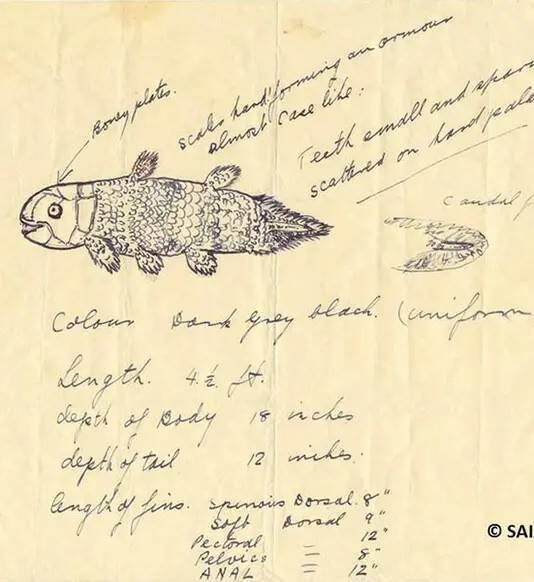 Boney plates.
scales hard forming an armour
almost case like:
Teeth small and
scattered on hard
Caudal
Colour Dark grey black. (uniform
Length. 4.½. ft.
depth of Body 18 inches
depth of tail 12 inches.
length of fins. Spinous Dorsal. 8"
Soft Dorsal 9"
Pectoral = 12"
Pelvics = 8"
ANAL = 12"
© SAI